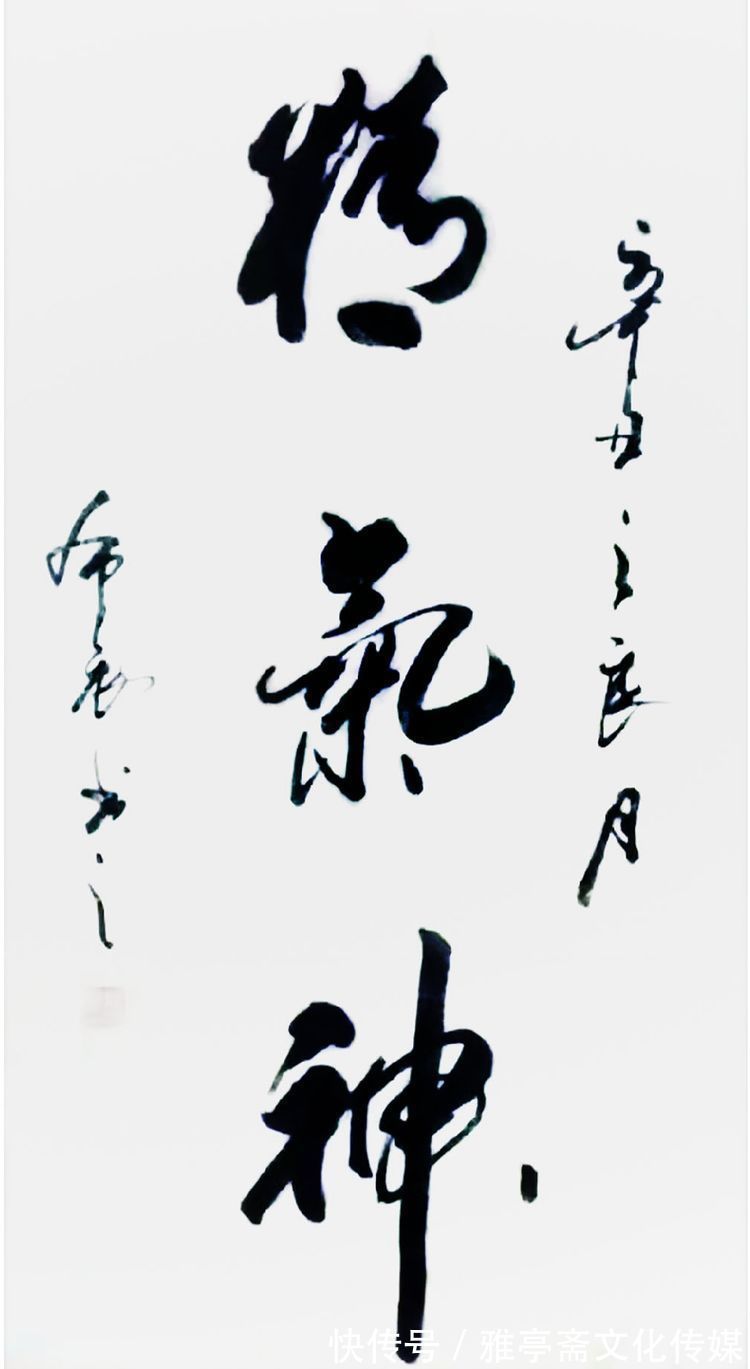 辛丑之良月
精氣神
书之
快传号 / 雅亭斋文化传媒